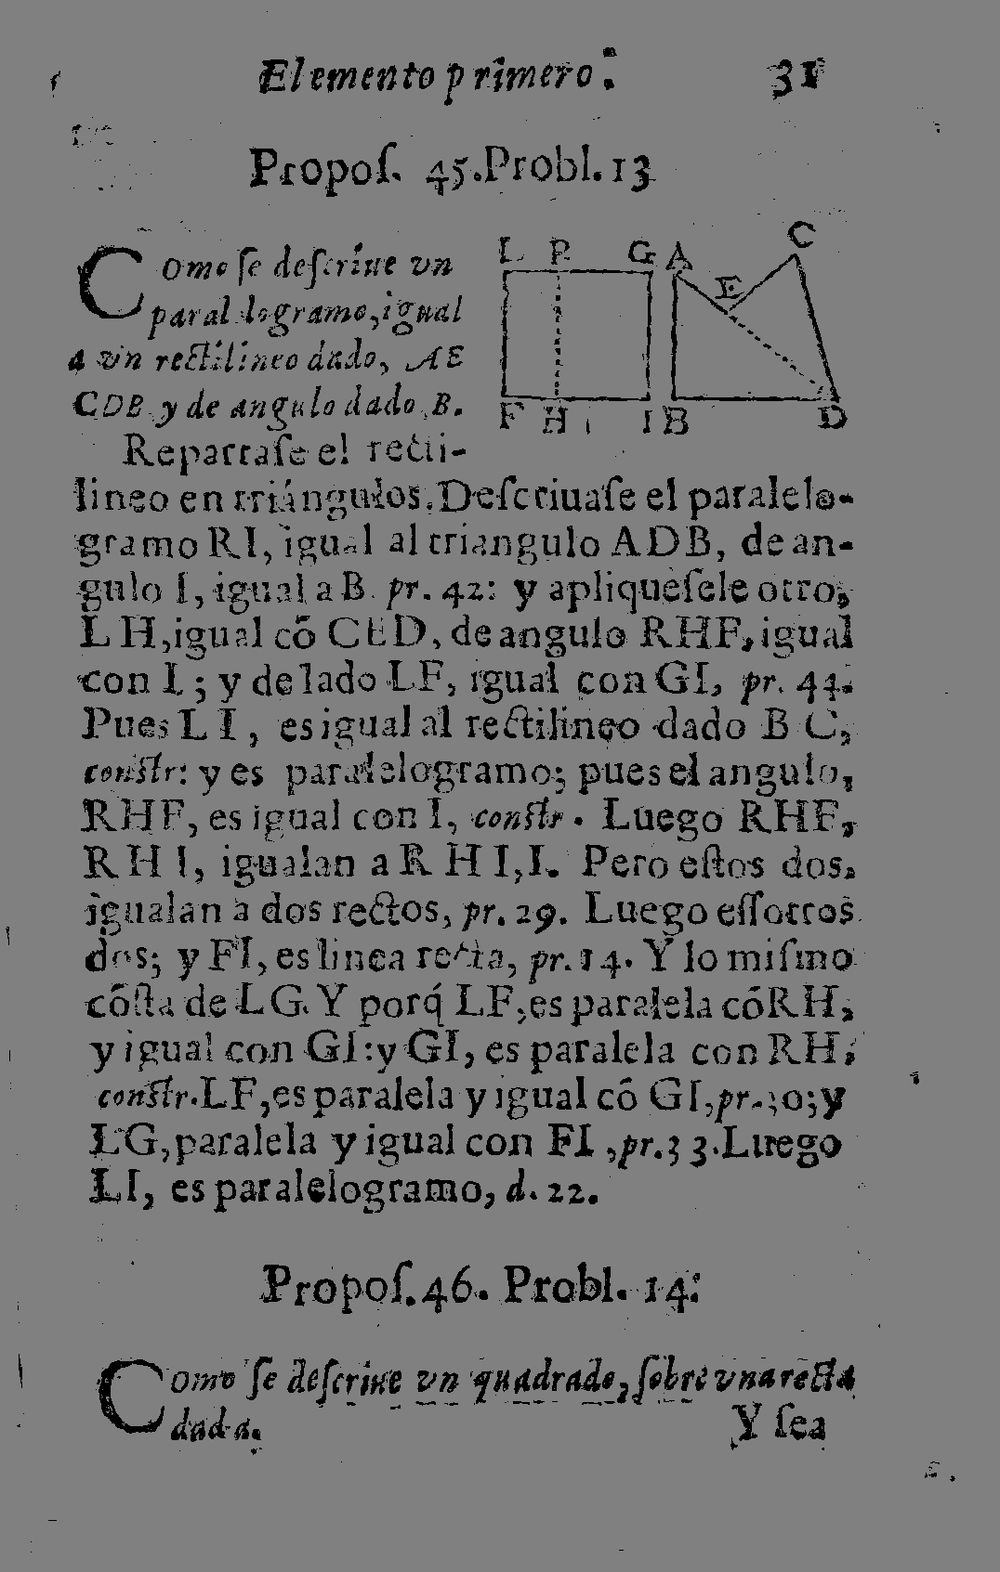 Elemento primero. 31
Propoſ. 45. Probl. 13
L R G A C
E
F H I B D
Como ſe deſcriue vn
paralelogramo, igual
a vn rectilineo dado, AE
CDB y de angulo dado B.
Repartaſe el recti-
lineo en triángulos. Deſcriuaſe el paralelo-
gramo RI, igual al triangulo ADB, de an-
gulo I, igual a B pr. 42: y apliqueſele otro,
LH, igual cõ CED, de angulo RHF, igual
con I; y de lado LF, igual con GI, pr. 44.
Pues LI, es igual al rectilineo dado BC,
conſtr: y es paralelogramo; pues el angulo,
RHF, es igual con I, conſtr. Luego RHF,
RHI, igualan a RHI, I. Pero eſtos dos,
igualan a dos rectos, pr. 29. Luego eſſotros
dos; y FI, es linea recta, pr. 14. Y lo miſmo
cõſta de LG. Y porq́ LF, es paralela cõ RH,
y igual con GI: y GI, es paralela con RH,
conſtr. LF, es paralela y igual cõ GI, pr. 30; y
LG, paralela y igual con FI, pr. 33. Luego
LI, es paralelogramo, d. 22.
Propoſ. 46. Probl. 14.
Como ſe deſcriue vn quadrado, ſobre vna recta
dada. Y ſea